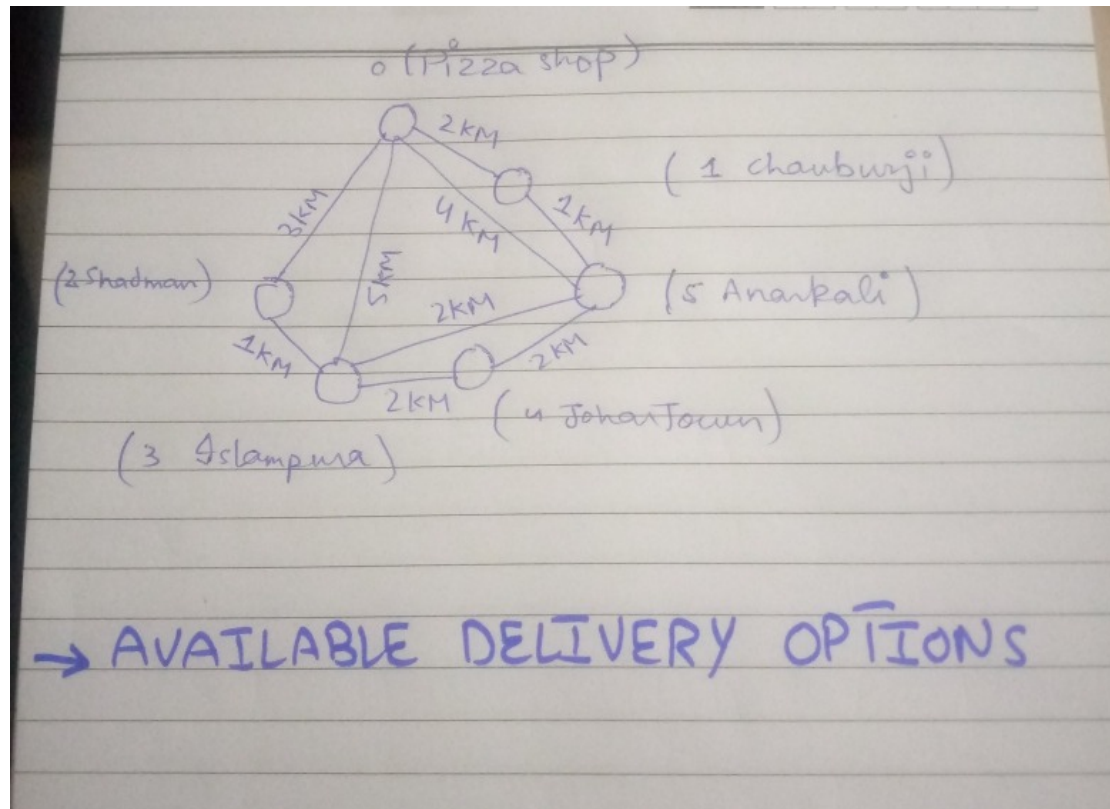 0 (Pizza shop)
2KM
(1 Chauburji)
3KM
4KM
1KM
5KM
(2 Shadman)
(5 Anarkali)
2KM
1KM
2KM
2KM
(4 JoharTown)
(3 Islampura)
→ AVAILABLE DELIVERY OPTIONS